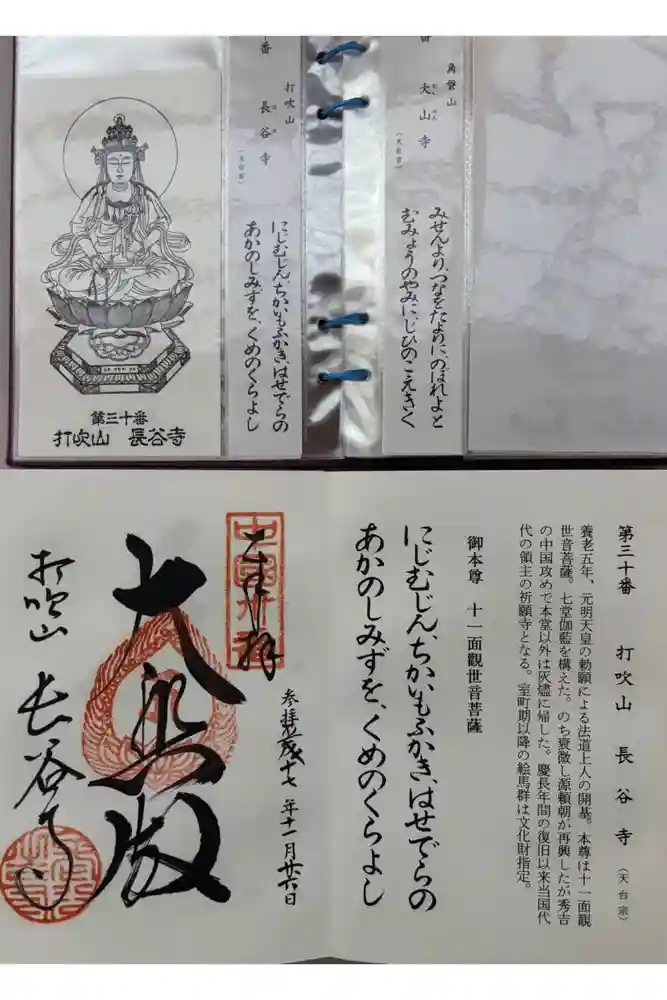 角磐山
大山寺
だいせん
(天台宗)
みせんより、つなをたよりに、のぼれよと
むみょうのやみに、じひのこえきく
打吹山
長谷寺
はせ
(天台宗)
にじむじん、ちかいもふかき、はせでらの
あかのしみずを、くめのくらよし
第三十番
打吹山 長谷寺
第三十番 打吹山 長谷寺 (天台宗)
養老五年、元明天皇の勅願による法道上人の開基。本尊は十一面観
世音菩薩。七堂伽藍を構えた。のち衰微し源頼朝が再興したが秀吉
の中国攻めで本堂以外は灰燼に帰した。慶長年間の復旧以来当国代
代の領主の祈願寺となる。室町期以降の絵馬群は文化財指定。
御本尊 十一面觀世音菩薩
にじむじん、ちかいもふかき、はせでらの
あかのしみずを、くめのくらよし
奉拝
年十一月廿六日
大悲殿
打吹山 長谷寺